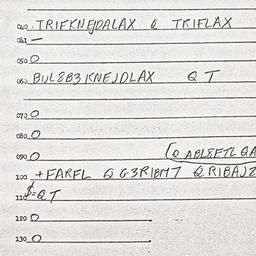 040 TRIFKNEJDALAX & TRIFLAX
041 —
050 O
060 BUL8B3 KNEJDLAX Q T
070 O
080 O
090 O (O ABL8ETL QA
100 +FARFL Q G3RIBM7 QRIBAJZ
110 $=QT
120 O
130 O